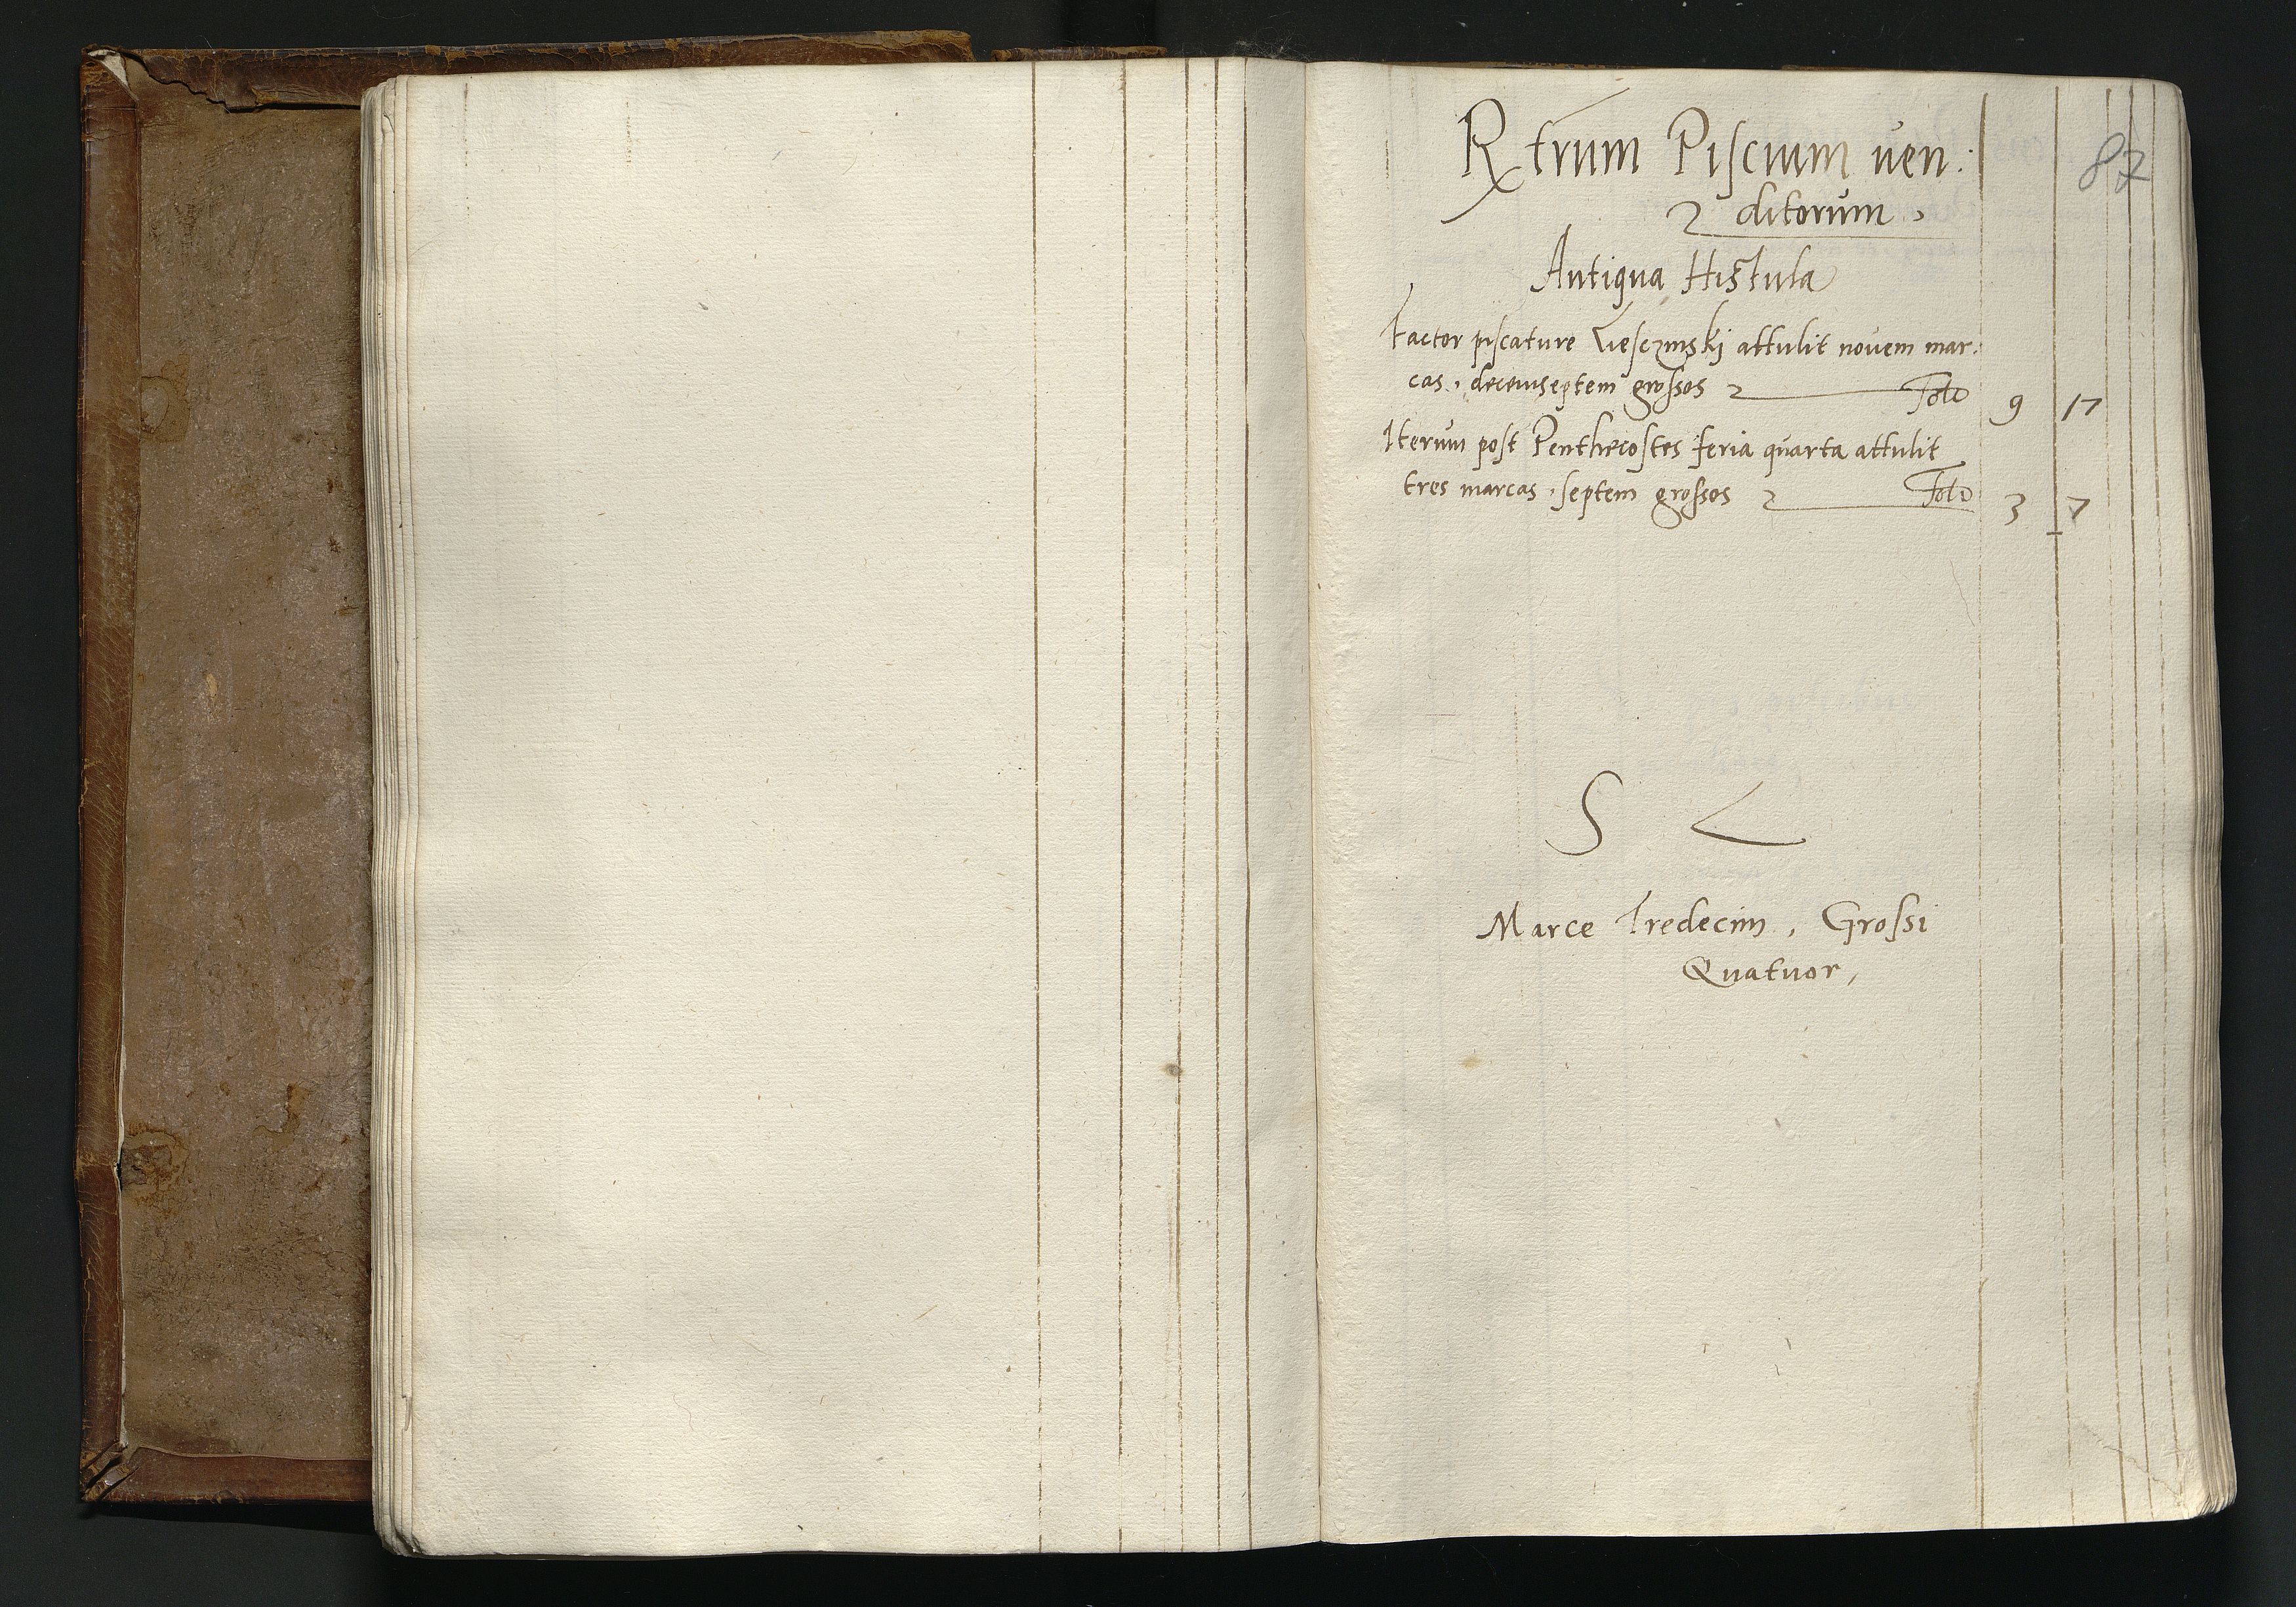 Rtrum Piscium ven:
ditorum,
87
Antiqua Histula
Factor piscature attulit novem mar:
cas, decemseptem grossos Fa͞ct 9 17
Iterum post Penthecostes feria quarta attulit
tres marcas, septem grossos 3 7
S
Marce Tredecim, Grossi
Quatuor,